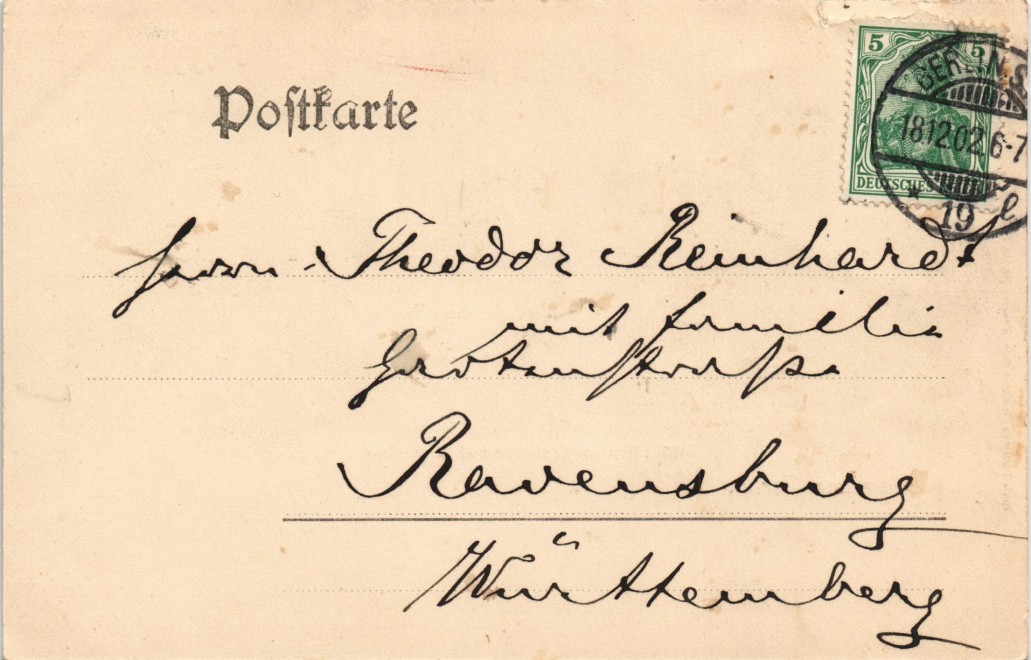 Postkarte
5 5
BERLIN.S.
18.12.02.6-7
* 19 l
DEUTSCHES
Herrn Theodor Reinhardt
mit Familie
Ravensburg
Württemberg